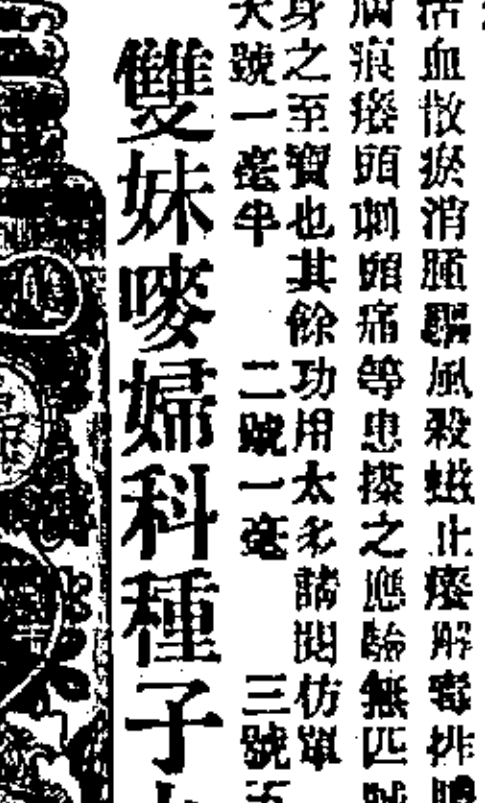 活血散瘀消腫驅風殺蚊止癢解毒排膿
痕癢頭刺頭痛等患搽之應驗無匹
身之至寶也其餘功用太多請閱仿單
大號一毫半 二號一毫 三號五
雙妹嘜婦科種子